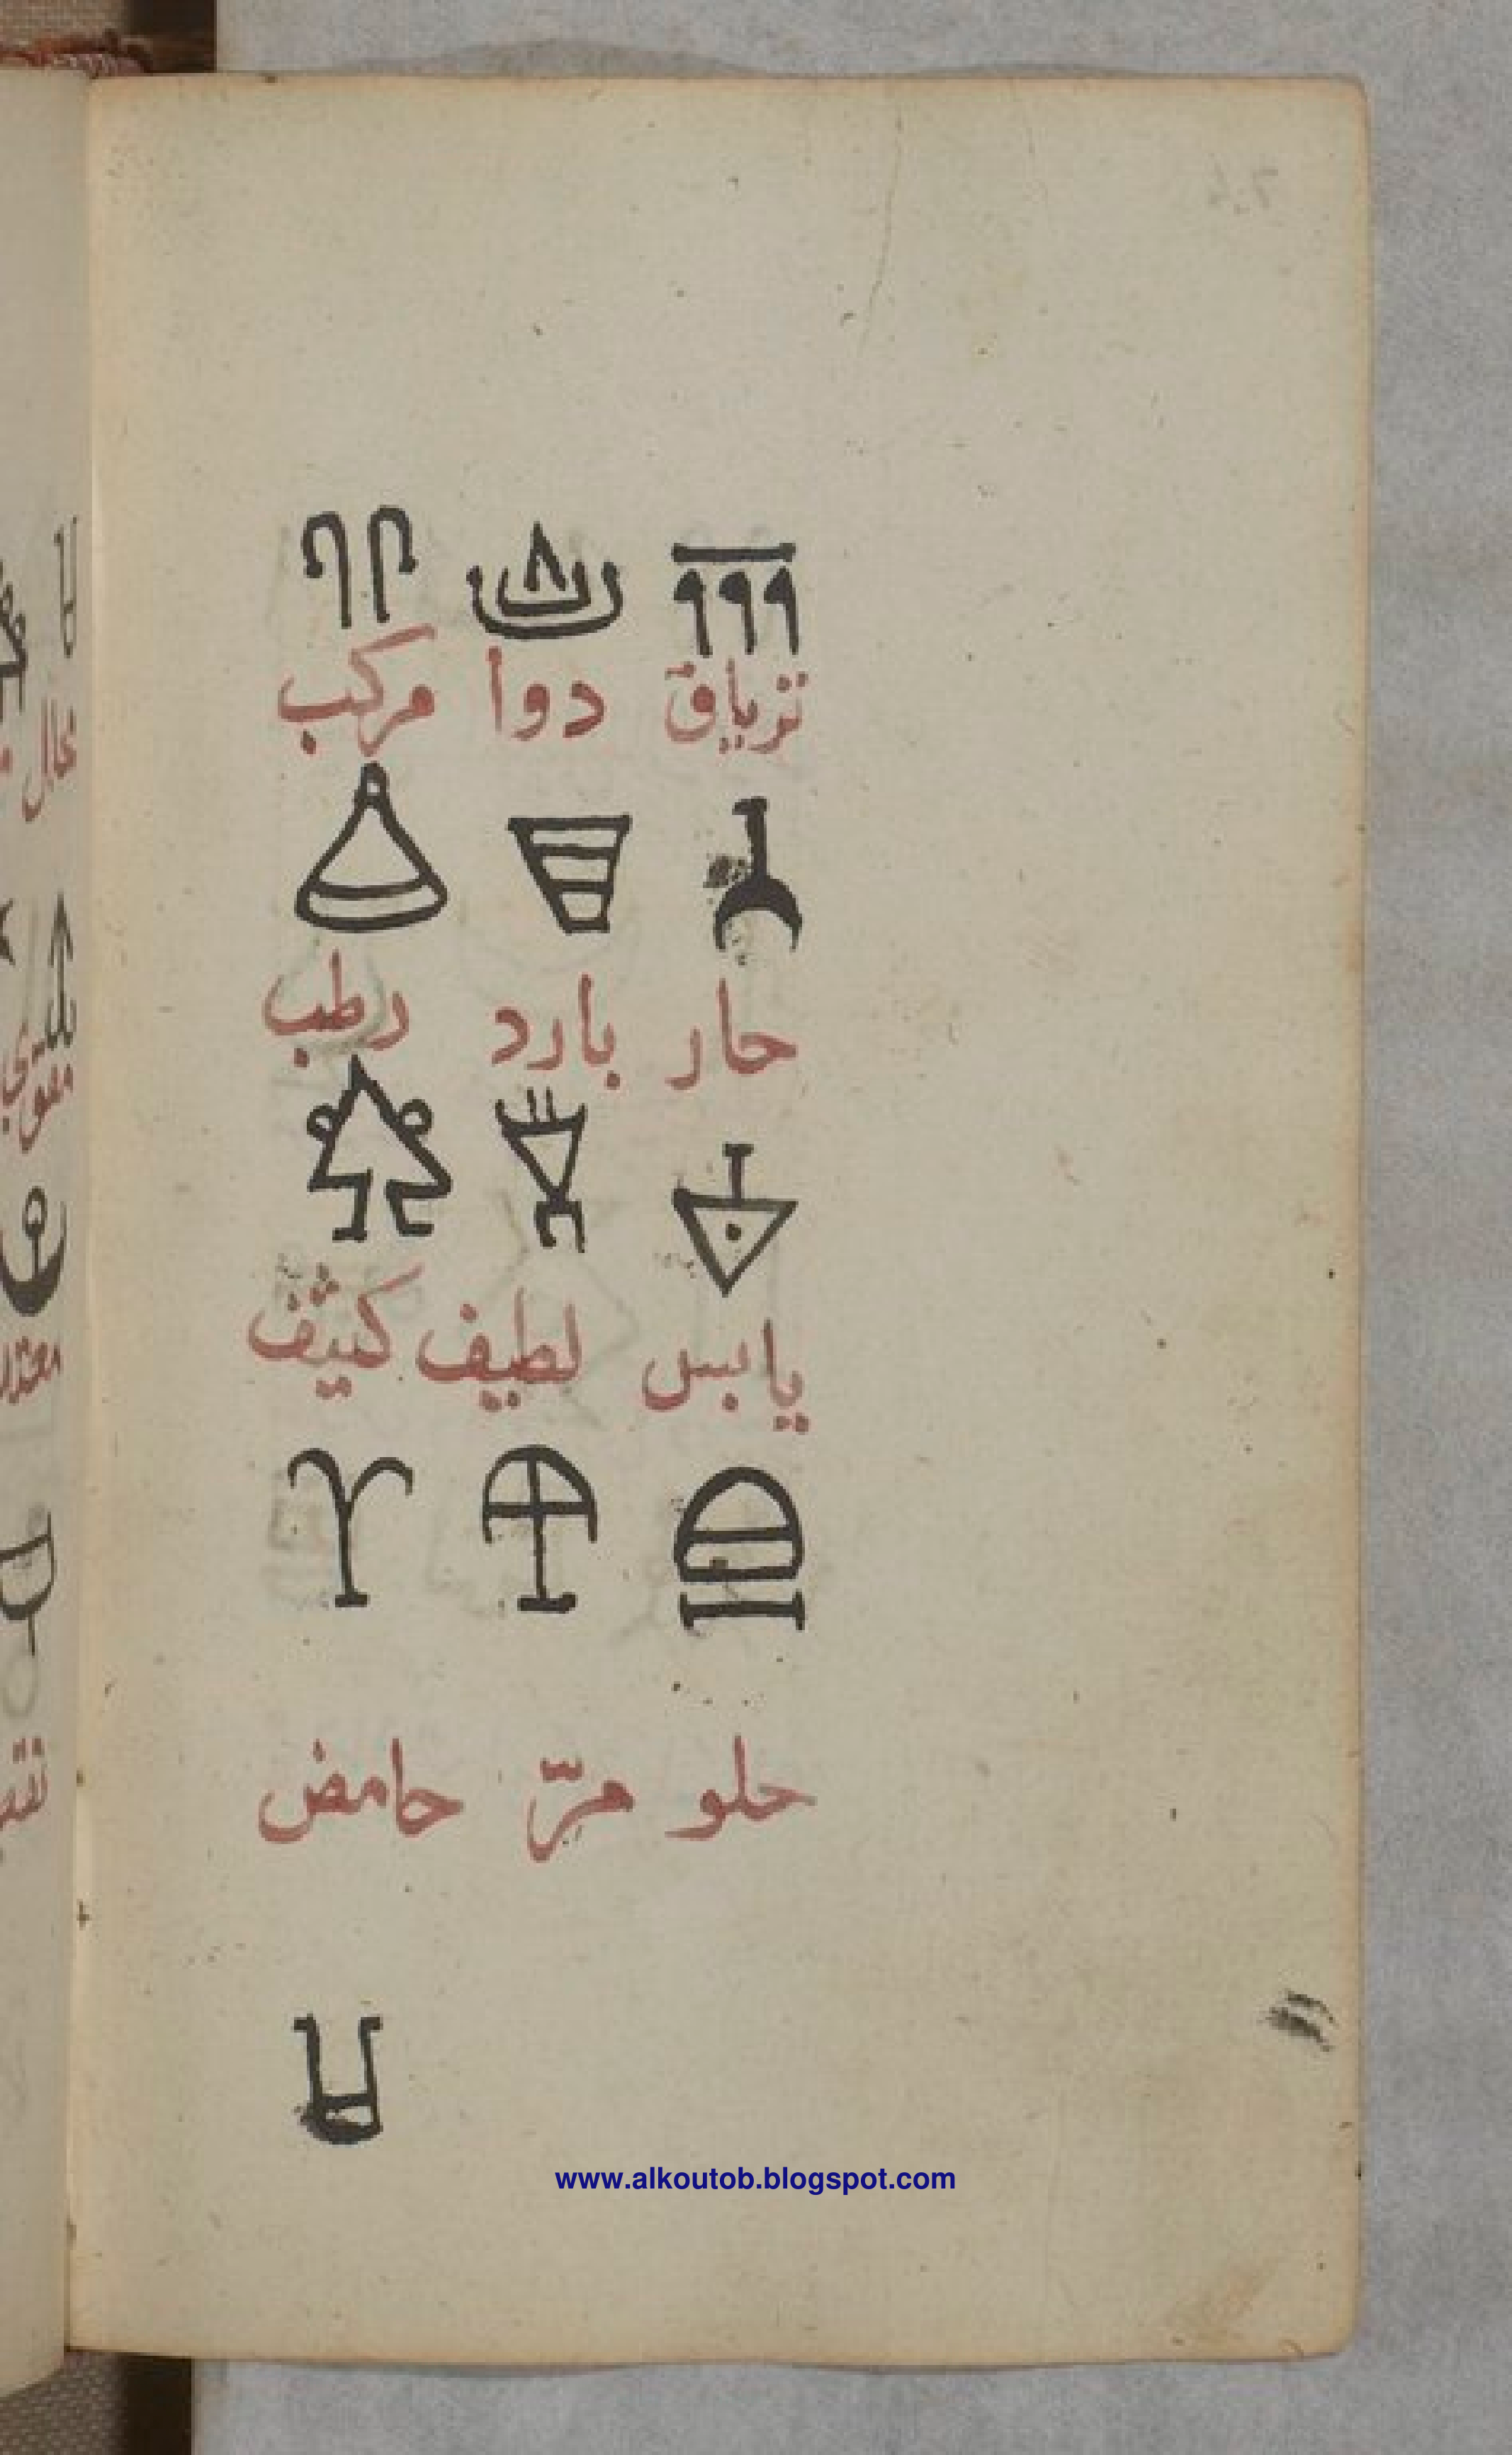 ترياق دوا مركب
حار بارد رطب
يابس لطيف كثيف
حلو مرّ حامض
www.alkoutob.blogspot.com